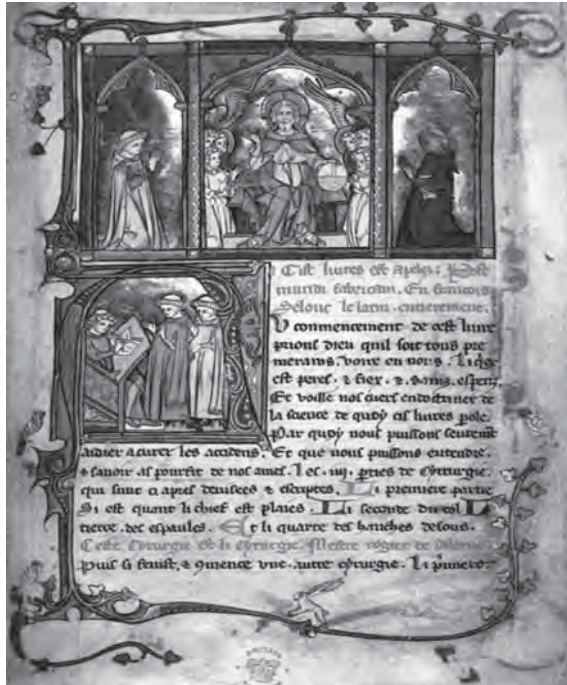 Cist liures est apelez. Post
mundi fabricam. En francois
Selonc le latin. entierement.
U commencement de cest liure
prions dieu quil soit tous pre
merains. voire en nos. li
est peres. & fiex. & sainz. esperiz
Et voille nos cuers endoctriner de
la science de quoy cis liures pole.
Par quoy nous puissons seurement
aidier a curer les accidens. Et que nous puissons entendre.
& sauoir al pourfit de nos ames. Les .iiij. parties de cyrurgie.
qui sunt ci apres deuisees & escriptes. Li premiere partie
Si est quant li chief est plaies. Li seconde du col
tierce. des espaules. Et li quarte des hanches desous.
Ceste cyrurgie est li cyrurgie. Mestre rogier de salerne
Puis si fenist, & 9mence vne. autre cyrurgie. Li